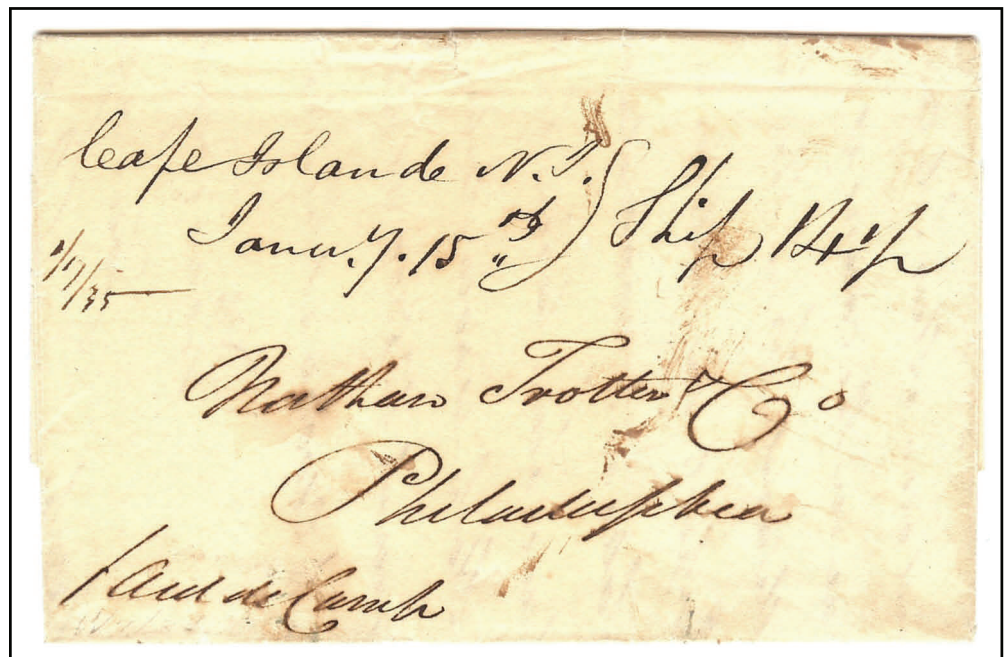 Cape Islande N.J.
Janu.y. 15th Ship 14½
1/17/35
Nathan Trotter & Co
Philadelphia